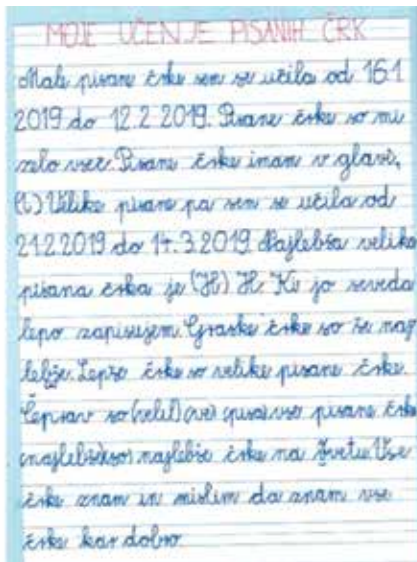 MOJE UČENJE PISANIH ČRK
Male pisane črke sem se učila od 16.1
2019 do 12.2.2019. Pisane črke so mi
zelo všeč. Pisane črke imam v glavi,
Velike pisane pa sem se učila od
21.2.2019 do 14.3.2019. Najlebša velika
pisana črka je (H) H. Ki jo seveda
lepo zapisujem. Graske črke so še naj
lebše. Lepše črke so velike pisane črke.
Čeprav so vse pisane črke
najlebše črke na švetu. Vse
črke znam in mislim da znam vse
črke kar dobro.